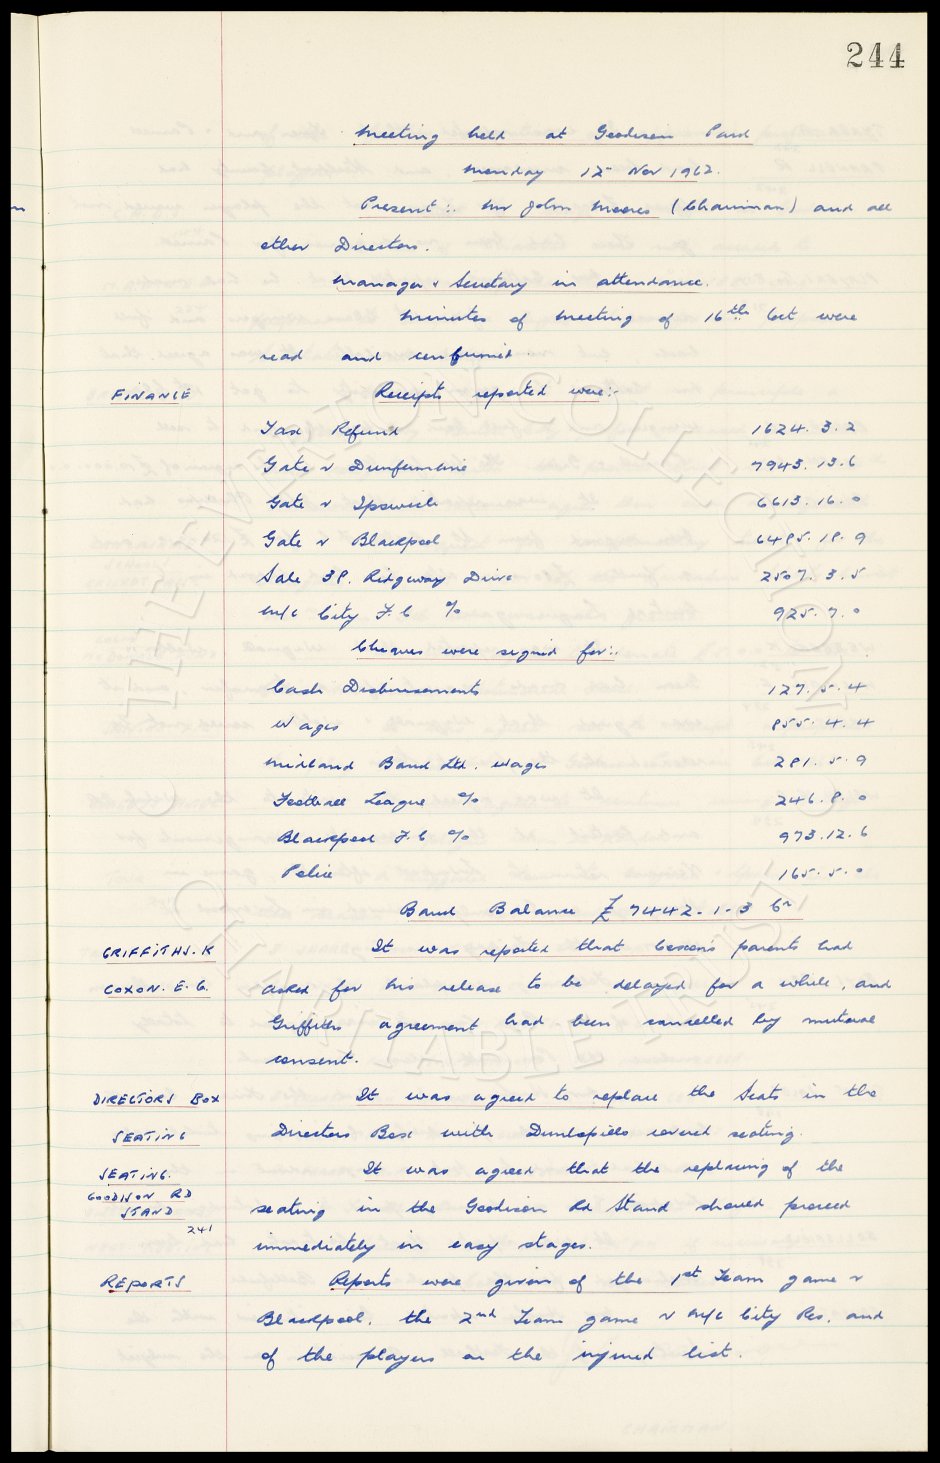 244
Meeting held at Goodison Park
Monday 12th Nov 1962.
Present :. Mr John Moores (Chairman) and all
other Directors.
Manager & Secretary in attendance.
Minutes of meeting of 16th Oct were
read and confirmed.
FINANCE Receipts reported were:-
Tax Refund 1624. 3. 2
Gate v Dunfermline 7943. 13. 6
Gate v Ipswich 6613. 16. 0
Gate v Blackpool 6485. 18. 9
Sale 38. Ridgeway Drive 2507. 3. 5
M/c City F.C % 925. 7. 0
Cheques were signed for:.
Cash Disbursements 127. 5. 4
Wages 855. 4. 4
Midland Bank Ltd. Wages 281. 5. 9
Football League % 246. 8. 0
Blackpool F.C % 973. 12. 6
Police 165. 5. 0
Bank Balance £ 7442-1-3 Cr
GRIFFITHS. K It was reported that Coxon's parents had
COXON. E. G. asked for his release to be delayed for a while, and
Griffiths agreement had been cancelled by mutual
consent.
DIRECTORS BOX It was agreed to replace the Seats in the
SEATING Directors Box with Dunlopillo covered seating.
SEATING. It was agreed that the replacing of the
GOODISON RD
STAND seating in the Goodison Rd Stand should proceed
241
immediately in easy stages.
REPORTS Reports were given of the 1st Team game v
Blackpool, the 2nd Team game v M/c City Res, and
of the players on the injured list.
THE EVERTON COLLECTION
CHARITABLE TRUST